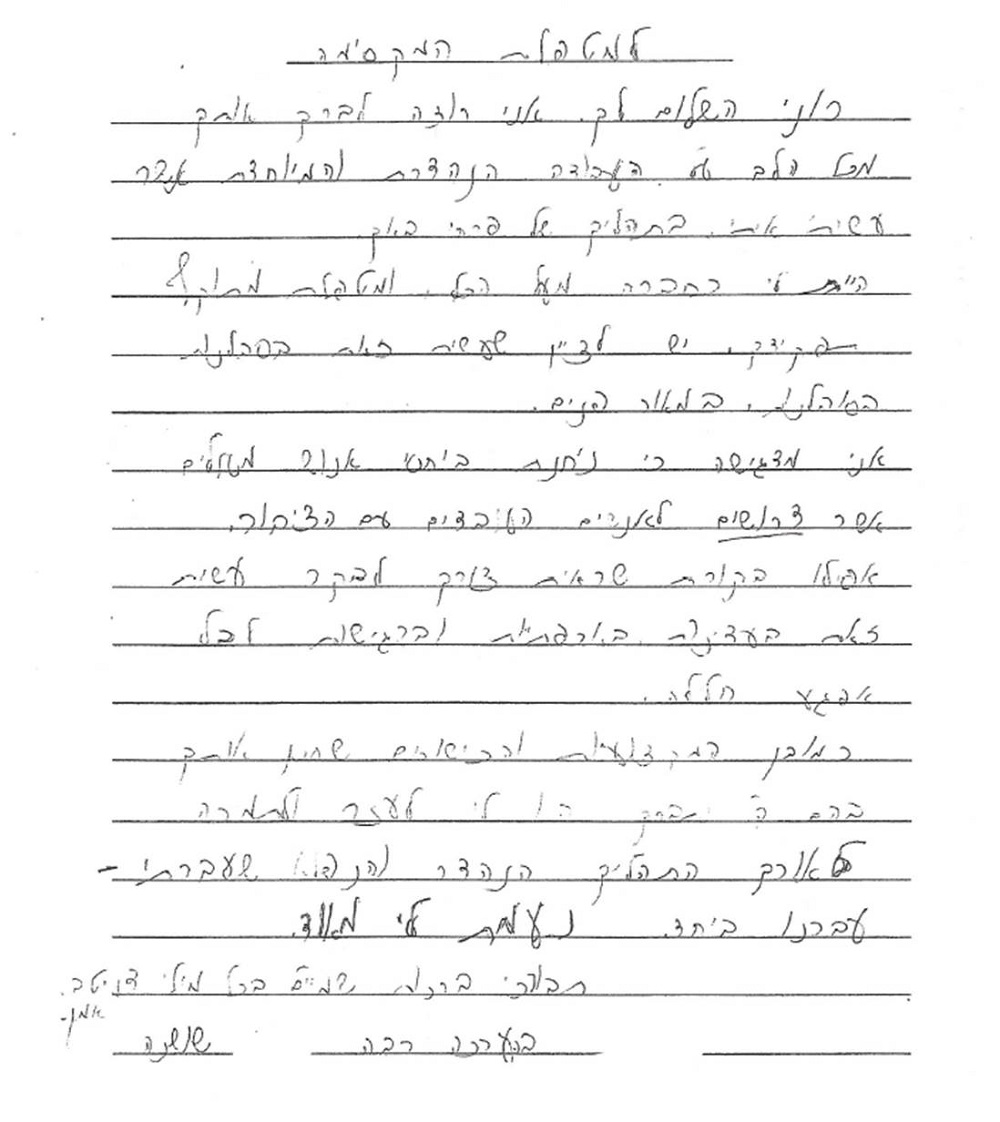 למטפלת המקסימה
רוני השלום לך. אני רוצה לברך אותך
מכל הלב על העבודה הנהדרת והמיוחדת אשר
עשית איתי. בתהליך של פרחי באך
היית לי כחברה מעל הכל, ומטפלת מתוקף
תפקידך. יש לציין שעשית זאת בסבלנות
בסובלנות, במאור פנים.
אני מדגישה כי ניחנת ביחסי אנוש מעולים
אשר דרושים לאנשים העובדים עם הציבור.
אפילו בקורת שראית צורך לבקר עשית
זאת בעדינות באכפתיות וברגישות לבל
אפגע חלילה.
כמובן המקצועיות והכישורים שחינן אותך
בהם ה' יתברך היו לי לעזר ולתמיכה
לאורך התהליך הנהדר והנפלא שעברתי -
עברנו ביחד. נעמת לי מאוד.
תבורכי ברכות שמיים בכל מילי דמיטב.
אמן.
בהערכה רבה שושנה